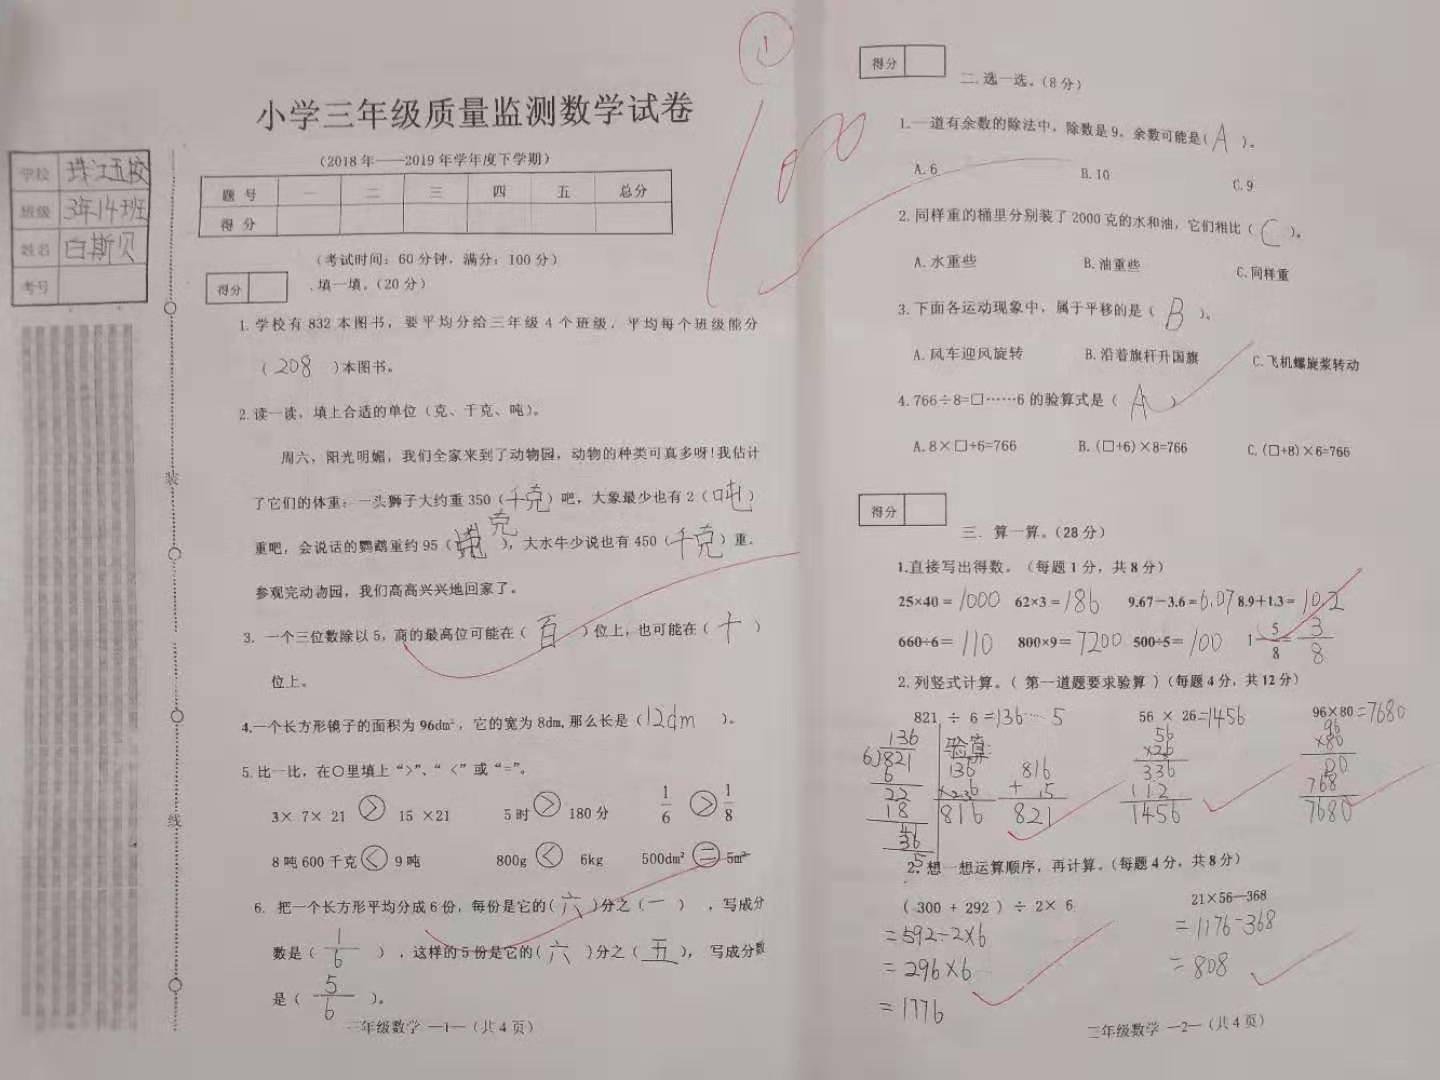 学校 珠江五校
班级 3年14班
姓名 白斯贝
考号
装
线
小学三年级质量监测数学试卷
（2018 年——2019 年学年度下学期）
题 号 一 二 三 四 五 总分
得 分
（考试时间：60 分钟，满分：100 分）
得分
.填一填。（20 分）
1.学校有 832 本图书，要平均分给三年级 4 个班级．平均每个班级能分
（ 208 ）本图书。
2.读一读，填上合适的单位（克、千克、吨）。
周六，阳光明媚，我们全家来到了动物园，动物的种类可真多呀！我估计
了它们的体重：一头狮子大约重 350（千克）吧，大象最少也有 2（吨）
重吧，会说话的鹦鹉重约 95（克），大水牛少说也有 450（千克）重．
参观完动物园，我们高高兴兴地回家了。
3. 一个三位数除以 5，商的最高位可能在（ 百 ）位上，也可能在（ 十 ）
位上。
4.一个长方形镜子的面积为 96dm²，它的宽为 8dm,那么长是（12dm ）。
5.比一比，在○里填上“>”、“<”或“=”。
3× 7× 21 > 15 ×21 5时 > 180 分 1/6 > 1/8
8 吨 600 千克 < 9 吨 800g < 6kg 500dm² = 5m²
6. 把一个长方形平均分成 6 份，每份是它的（ 六 ）分之（ 一 ） ，写成分
数是（ 1/6 ） ，这样的 5 份是它的（ 六 ）分之（ 五 ）， 写成分数
是（ 5/6 ）。
三年级数学 —1—（共 4 页）
1
100
得分
二.选一选。（8 分）
1.一道有余数的除法中，除数是 9，余数可能是（ A ）。
A.6 B.10 C.9
2.同样重的桶里分别装了 2000 克的水和油，它们相比（ C ）。
A.水重些 B.油重些 C.同样重
3.下面各运动现象中，属于平移的是（ B ）。
A.风车迎风旋转 B.沿着旗杆升国旗 C.飞机螺旋桨转动
4.766÷8=□……6 的验算式是（ A ）
A.8×□+6=766 B.（□+6）×8=766 C.（□+8）×6=766
得分
三. 算一算。（28 分）
1.直接写出得数。（每题 1 分，共 8 分）
25×40 = 1000 62×3 = 186 9.67－3.6 = 6.07 8.9＋1.3= 10.2
660÷6= 110 800×9= 7200 500÷5= 100 1－5/8= 3/8
2.列竖式计算。（ 第一道题要求验算 ）（每题 4 分，共 12 分）
821 ÷ 6 =136…5 56 × 26=1456 96×80=7680
136 验算: 56 96
6)821 136 816 ×26 ×80
6 × 6 + 5 336 00
22 816 821 112 768
18 1456 7680
41
36
5
2. 想一想运算顺序，再计算。（每题 4 分，共 8 分）
（ 300 + 292 ）÷ 2× 6 21×56—368
=592÷2×6 =1176-368
=296×6 =808
=1776
三年级数学 —2—（共 4 页）